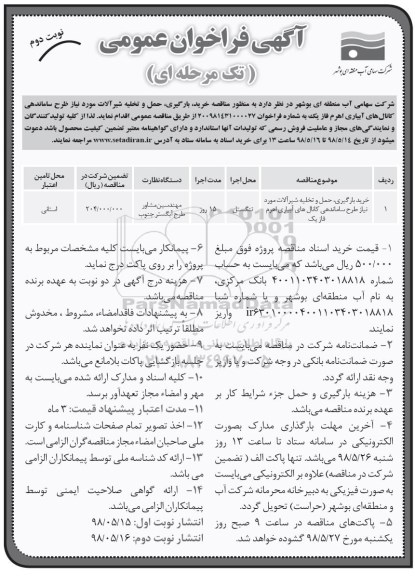 نوبت دوم
آگهی فراخوان عمومی
(تک مرحله ای)
شرکت سهامی آب منطقه ای بوشهر
شرکت سهامی آب منطقه ای بوشهر در نظر دارد به منظور مناقصه خرید، بارگیری، حمل و تخلیه شیرآلات مورد نیاز طرح ساماندهی
کانال‌های آبیاری اهرم فاز یک به شماره فراخوان ۲۰۰۹۸۱۴۳۱۰۰۰۰۲۷ از طریق مناقصه عمومی اقدام نماید. لذا از کلیه تولیدکنندگان
و نمایندگی‌های مجاز و عاملیت فروش رسمی که تولیدات آنها استاندارد و دارای گواهینامه معتبر تضمین کیفیت محصول باشد دعوت
میشود از تاریخ ۹۸/۵/۱۴ تا ۹۸/۵/۱۶ ساعت ۱۳ برای خرید اسناد به سامانه ستاد به آدرس www.setadiran.ir مراجعه نمایند.
ردیف موضوع مناقصه محل اجرا مدت اجرا دستگاه نظارت تضمین شرکت در مناقصه (ریال) محل تامین اعتبار
۱ خرید بارگیری، حمل و تخلیه شیرآلات مورد نیاز طرح ساماندهی کانال های آبیاری اهرم فاز یک تنگستان ۱۵۰ روز مهندسین مشاور طرح آبگستر جنوب ۲۰۴/۰۰۰/۰۰۰ استانی
۱- قیمت خرید اسناد مناقصه پروژه فوق مبلغ
۵۰۰/۰۰۰ ریال می‌باشد که می‌بایست به حساب
شماره ۴۰۰۱۱۰۳۴۰۳۰۱۸۸۱۸ بانک مرکزی،
به نام آب منطقه‌ای بوشهر و با شماره شبا
واریز
نمایند.
۲- ضمانت‌نامه شرکت در مناقصه می‌بایست به
صورت ضمانت‌نامه بانکی در وجه شرکت و یا واریز
وجه نقد ارائه گردد.
۳- هزینه بارگیری و حمل جزء شرایط کار بر
عهده برنده مناقصه می‌باشد.
۴- آخرین مهلت بارگذاری مدارک بصورت
الکترونیکی در سامانه ستاد تا ساعت ۱۳ روز
شنبه ۹۸/۵/۲۶ می‌باشد. تنها پاکت الف (تضمین
شرکت در مناقصه) علاوه بر الکترونیکی می‌بایست
به صورت فیزیکی به دبیرخانه محرمانه شرکت آب
و منطقه‌ای بوشهر (حراست) تحویل گردد.
۵- پاکت‌های مناقصه در ساعت ۹ صبح روز
یکشنبه مورخ ۹۸/۵/۲۷ گشوده خواهد شد.
۶- پیمانکار می‌بایست کلیه مشخصات مربوط به
پروژه را بر روی پاکت درج نماید.
۷- هزینه درج آگهی در دو نوبت به عهده برنده
مناقصه می‌باشد.
۸- به پیشنهادات فاقد امضاء، مشروط، مخدوش
مطلقا ترتیب اثر داده نخواهد شد.
۹- حضور یک نفر به عنوان نماینده هر شرکت در
جلسه بازگشایی پاکات بلامانع می‌باشد.
۱۰- کلیه اسناد و مدارک ارائه شده می‌بایست به
مهر و امضاء مجاز تعهدآور برسد.
۱۱- مدت اعتبار پیشنهاد قیمت: ۳ ماه
۱۲- اخذ تصویر تمام صفحات شناسنامه و کارت
ملی صاحبان امضاء مجاز مناقصه‌گران الزامی است.
۱۳- ارائه کد شناسه ملی توسط پیمانکاران الزامی
می باشد.
۱۴- ارائه گواهی صلاحیت ایمنی توسط
پیمانکاران الزامی می‌باشد.
انتشار نوبت اول: ۹۸/۰۵/۱۵
انتشار نوبت دوم: ۹۸/۰۵/۱۶